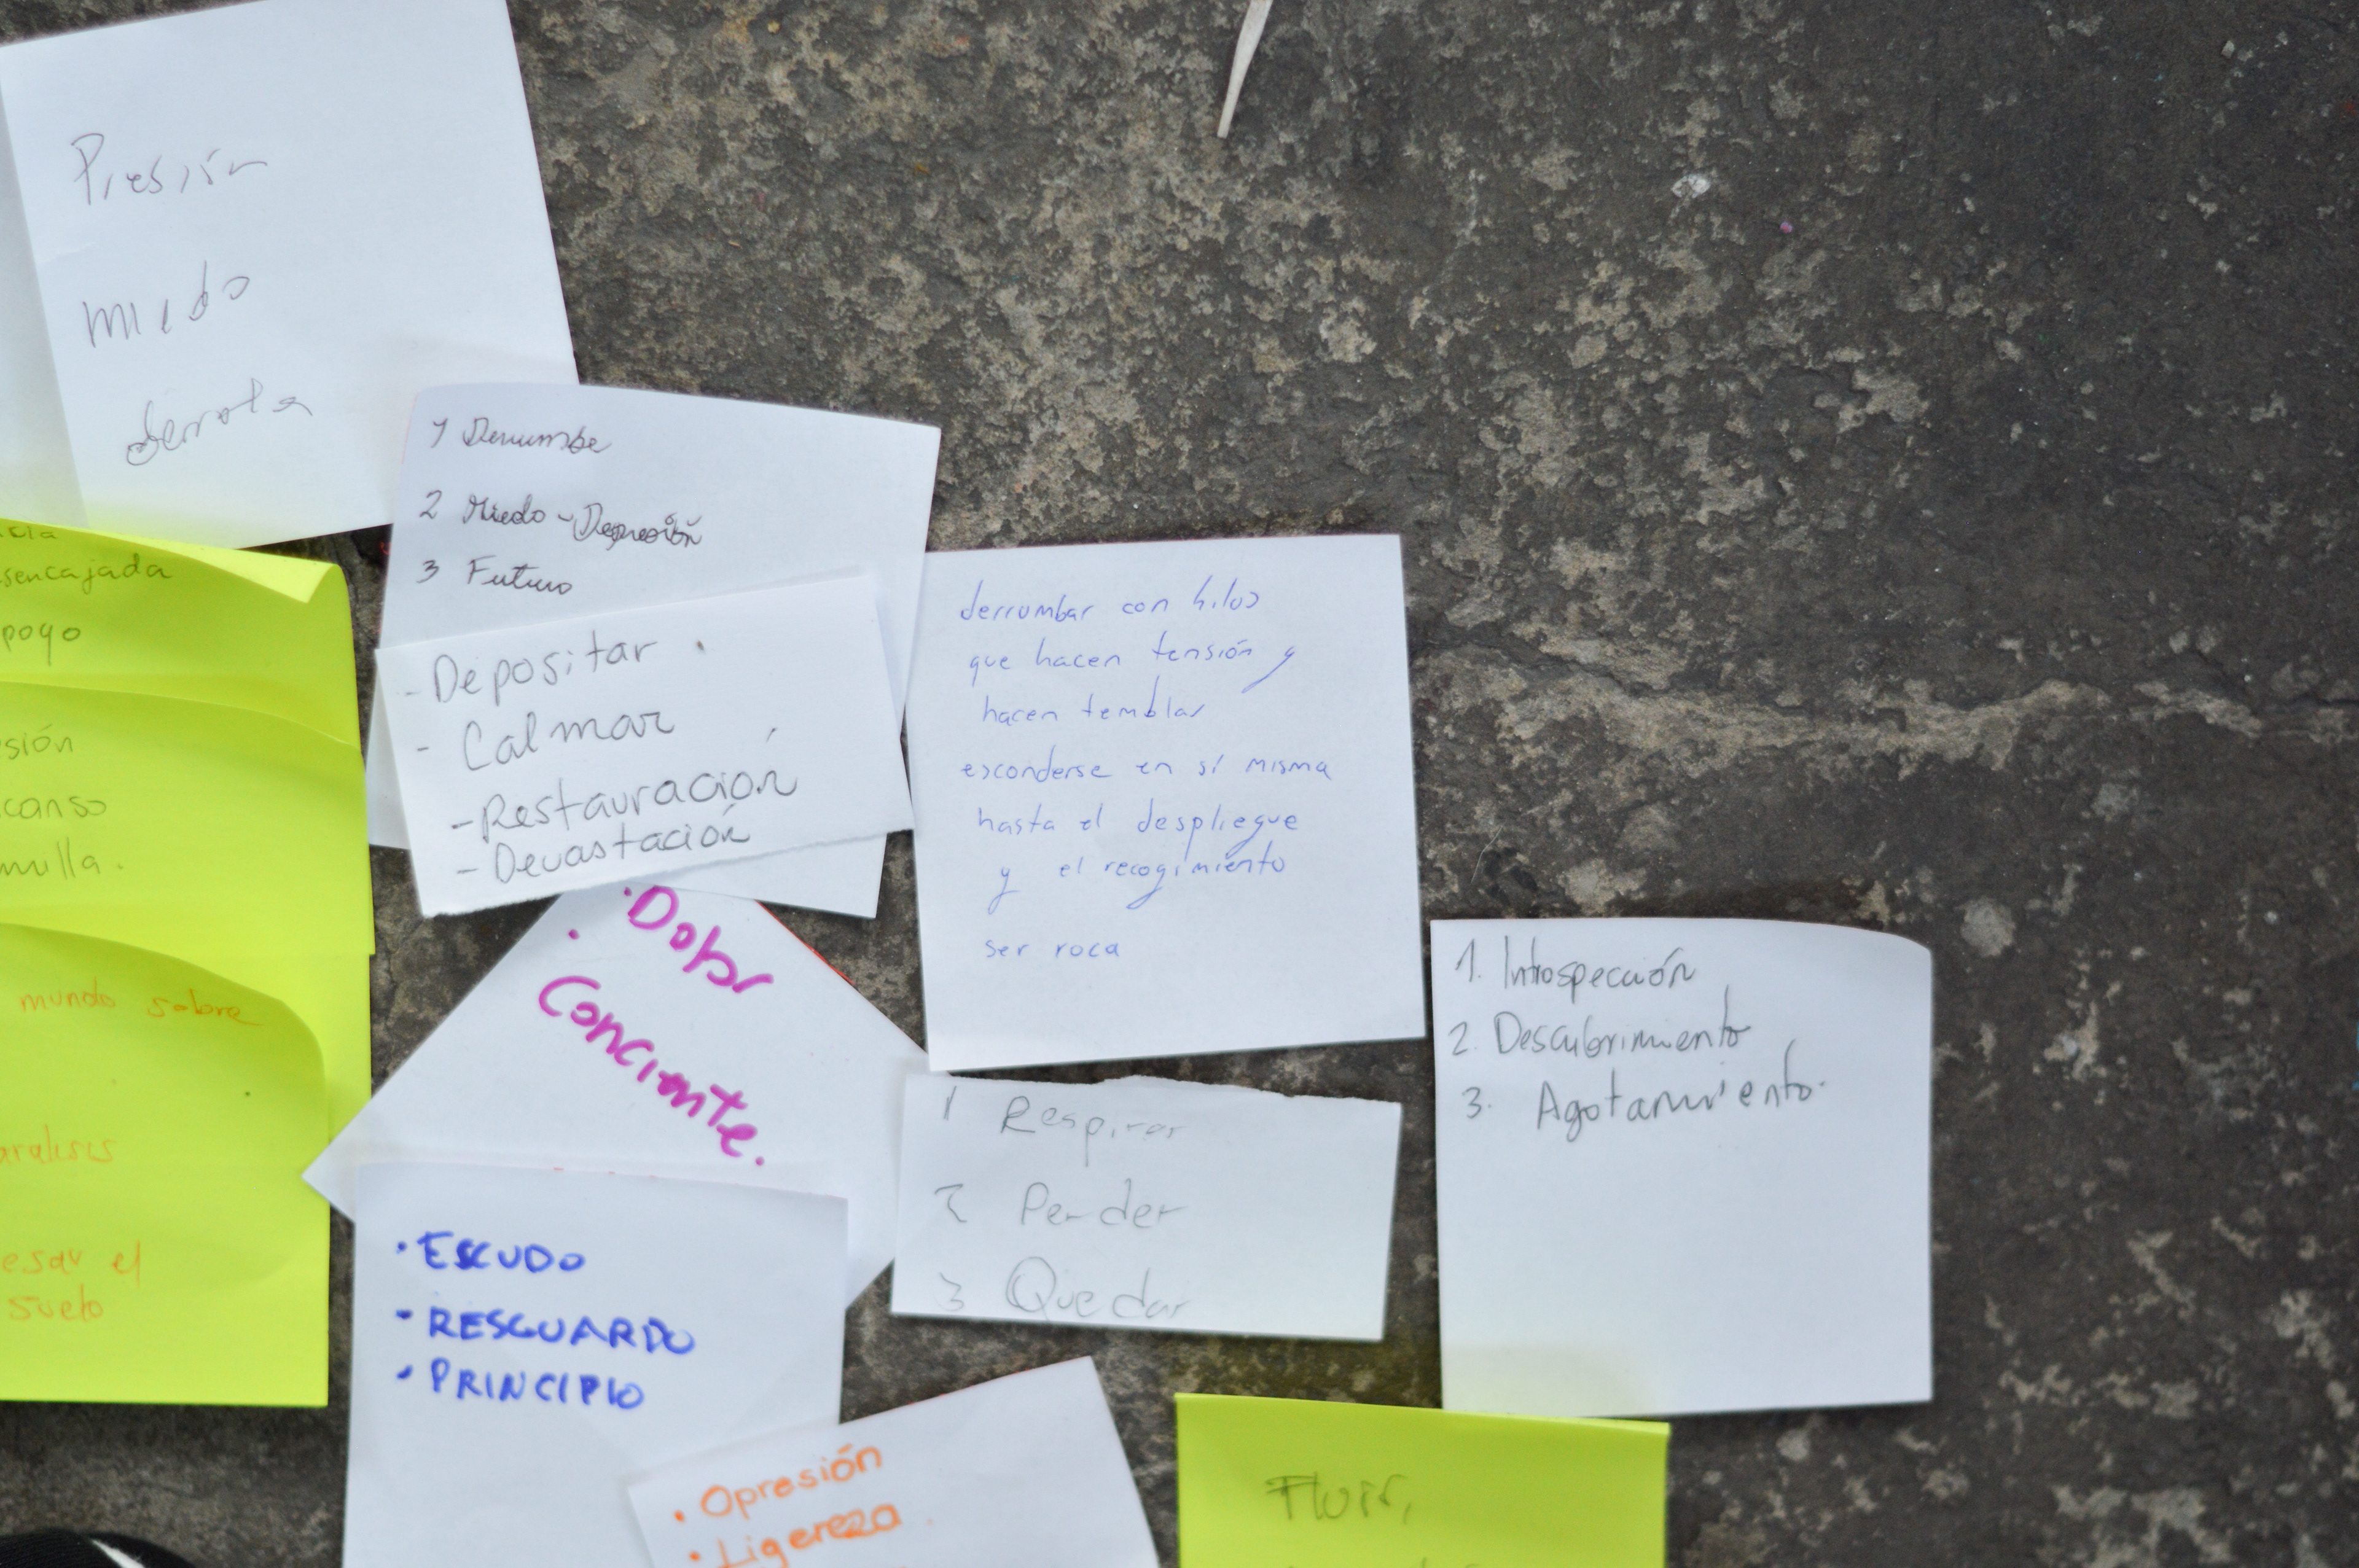 Presión
miedo
derrota
1 Derrumbe
2 Miedo - Depresión
3 Futuro
- Depositar
- Calmar
- Restauración
- Devastación
derrumbar con hilos
que hacen tensión y
hacen temblar
esconderse en sí misma
hasta el despliegue
y el recogimiento
ser roca
poyo
sión
canso
mundo sobre
esar el
suelo
• Dolor
• Conciente.
1 Respirar
2 Perder
3 Quedar
1. Introspección
2. Descubrimiento
3. Agotamiento.
• ESCUDO
- RESGUARDO
• PRINCIPIO
• Opresión
• Ligereza
Fluir,